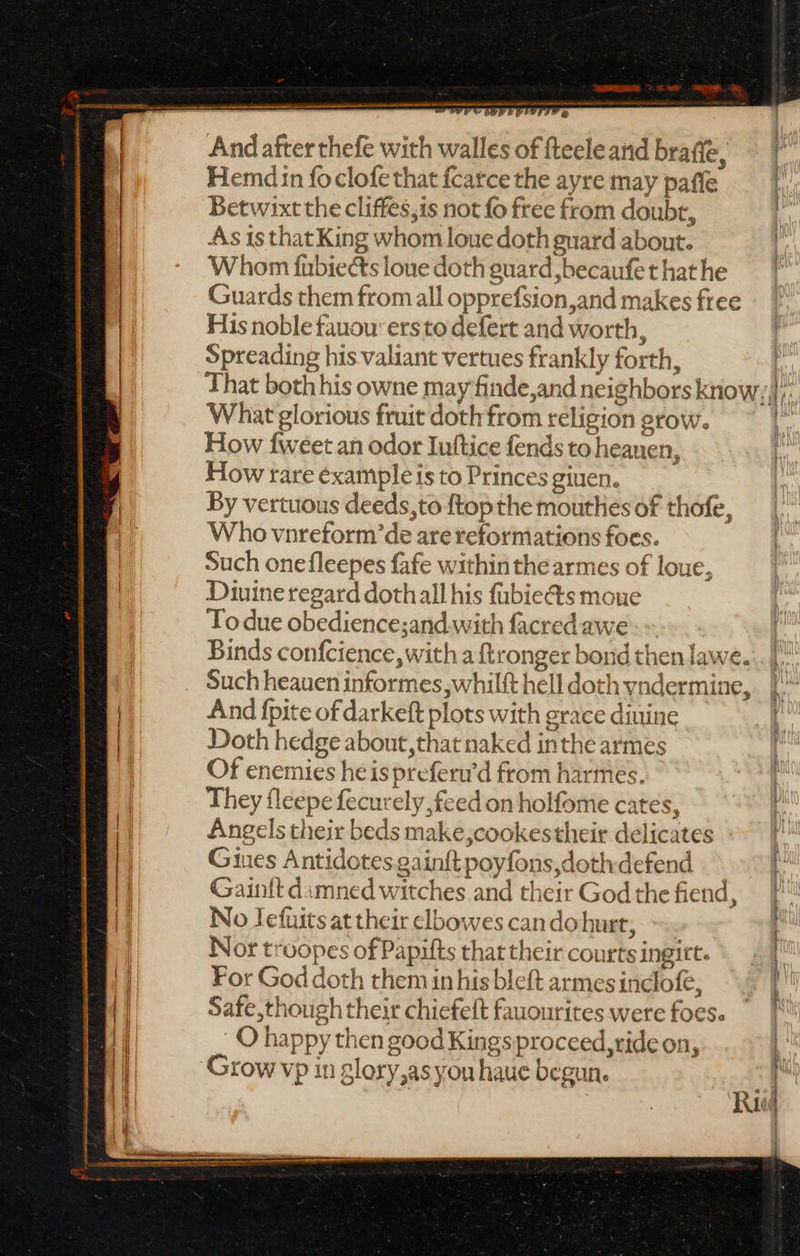 And after theſe with walles of ſteele and braſſe,
Hemd in ſo cloſe that ſcarce the ayre may paſſe
Betwixt the cliffes, is not ſo free from doubt,
As is that King whom loue doth guard about.
Whom ſubiects loue doth guard, becauſe that he
Guards them from all oppreſsion, and makes free
His noble fauou ers to deſert and worth,
Spreading his valiant vertues frankly forth,
That both his owne may finde, and neighbors know,
What glorious fruit doth from religion grow.
How ſweet an odor Iuſtice ſends to heauen,
How rare example is to Princes giuen.
By vertuous deeds, to ſtop the mouthes of thoſe,
Who vnreform'de are reformations foes.
Such one ſleepes ſafe within the armes of loue,
Diuine regard doth all his ſubiects moue
To due obedience; and with ſacred awe
Binds conſcience, with a ſtronger bond then lawe.
Such heauen informes, whilſt hell doth vndermine,
And ſpite of darkeſt plots with grace diuine
Doth hedge about, that naked in the armes
Of enemies he is preſeru'd from harmes.
They ſleepe ſecurely, feed on holſome cates,
Angels their beds make, cookes their delicates
Giues Antidotes gainſt poyſons, doth defend
Gainſt damned witches and their God the fiend,
No Ieſuits at their elbowes can do hurt,
Nor troopes of Papiſts that their courts ingirt.
For God doth them in his bleſt armes incloſe,
Safe, though their chiefeſt fauourites were foes.
O happy then good Kings proceed, ride on,
Grow vp in glory, as you haue begun.